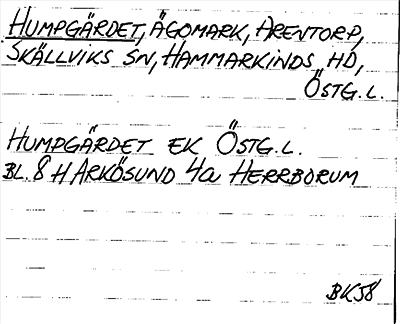 HUMPGÄRDET, ÄGOMARK, ARENTORP,
SKÄLLVIKS SN, HAMMARKINDS HD,
ÖSTG.L.
HUMPGÄRDET EK ÖSTG.L.
BL. 8 H ARKÖSUND 4a HERRBORUM
BK58